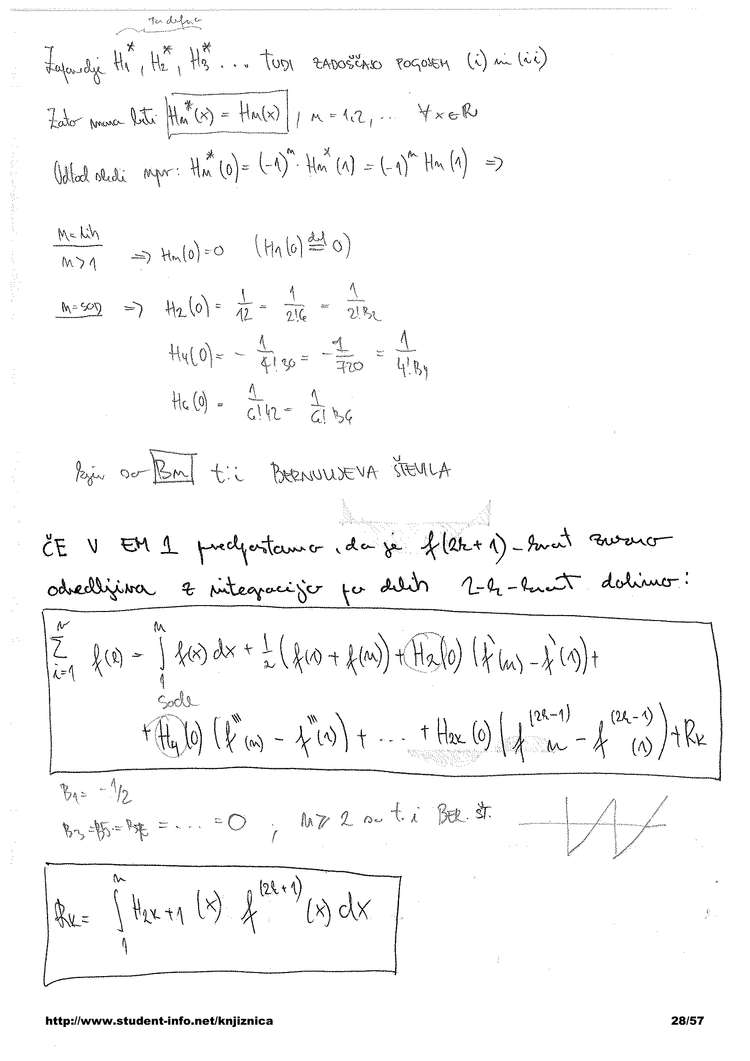 Zaporedje H₁*, H₂*, H₃* ... TUDI ZADOŠČAJO POGOJEM (i) in (ii)
Zato mora biti Hₘ*(x) = Hₘ(x), m = 1,2, ... ∀x∈R
Odtod sledi npr: Hₘ*(0) = (-1)ᵐ · Hₘ*(1) = (-1)ᵐ Hₘ(1) ⇒
m = lih
m > 1 ⇒ Hₘ(0) = 0 (H₁(0) ≝ 0)
m = SOD ⇒ H₂(0) = 1/12 = 1/2!6 = 1/2!B₂
H₄(0) = - 1/4!30 = - 1/720 = 1/4!B₄
H₆(0) = 1/6!42 = 1/6!B₆
kjer so Bₘ t.i. BERNULIJEVA ŠTEVILA
ČE V EM 1 predpostamo, da je f (2k+1)-krat zvezno
odvedljiva z integracijo po delih 2-k-krat dobimo:
∑ᵢ₌₁ⁿ f(i) = ∫₁ⁿ f(x) dx + 1/2 (f(1) + f(n)) + H₂(0) (f'(n) - f'(1)) +
sode
+ H₄(0) (f'''(n) - f'''(1)) + ... + H₂ₖ(0) (f⁽²ᵏ⁻¹⁾ n - f⁽²ᵏ⁻¹⁾(1)) + Rₖ
B₁ = -1/2
B₃ = B₅ = B₇ = ... = 0 ; n ≥ 2 so t.i BER. ŠT.
Rₖ = ∫₁ⁿ H₂ₖ₊₁ (x) f⁽²ᵏ⁺¹⁾ (x) dx
http://www.student-info.net/knjiznica 28/57